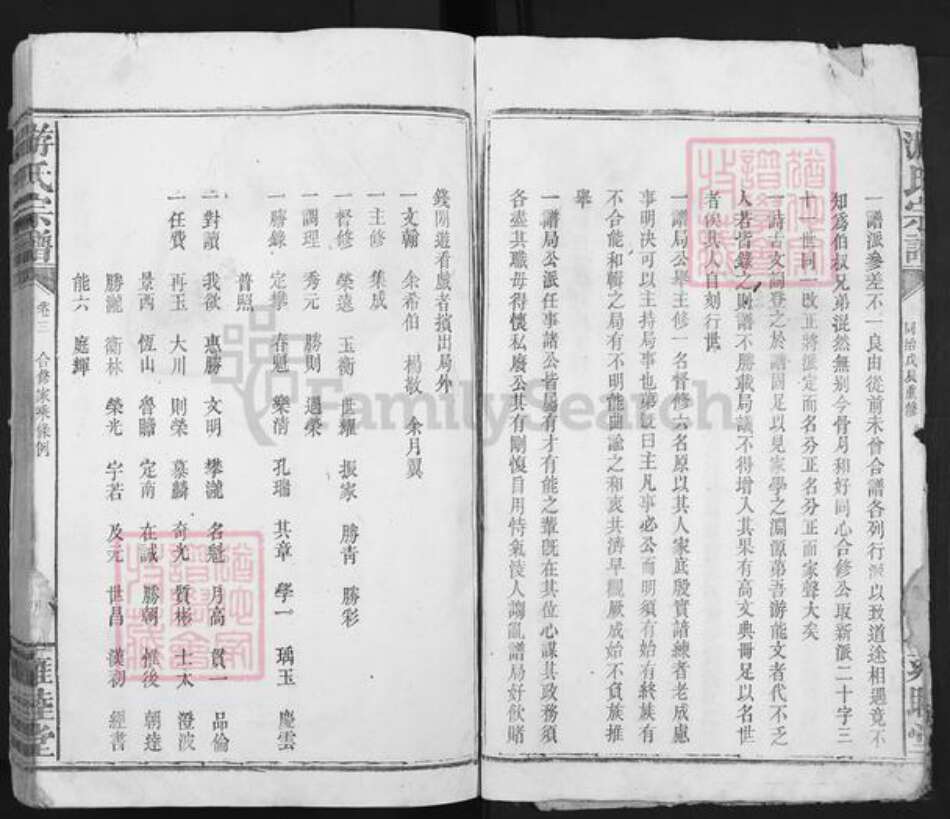 一譜派參差不一良由從前未曾合譜各列行派以致道途相遇竟不
知爲伯叔兄弟混然無別今骨月和好同心合修公取新派二十字三
十一世同一改正將派定而名分正名分正而家聲大矣
一詩古文詞登之於譜固足以見家學之淵源第吾游能文者代不乏
人若皆錄之則譜不勝載局議不得增入其果有高文典冊足以名世
者俟其人自刻行世
一譜局公舉主修一名督修六名原以其人家底殷實諳練者老成處
事明決可以主持局事也第既曰主凡事必公而明須有始有終族有
不合能和輯之局有不明能曲諭之和衷共濟早觀厥成始不負族推
舉
一譜局公派任事諸公皆屬有才有能之輩既在其位心謀其政務須
各盡其職毋得懷私廢公其有剛愎自用恃氣淩人謅亂譜局好飲賭
錢閒遊看戲者擯出局外
一文翰 余希伯 楊敬 余月翼
一主修 集成
一督修 榮遠 玉衡 世耀 振家 勝青 勝彩
一調理 秀元 勝則 遇榮
一謄錄 定攀 春魁 樂清 孔瑞 其章 學一 瑀玉 慶雲
普照
一對讀 我欲 惠勝 文明 攀瀧 名魁 月高 貫一 品倫
一任費 再玉 大川 則榮 慕麟 奇光 質彬 士太 澄波
景西 恆山 魯瞻 定南 在誠 勝朝 惟後 朝達
勝瀧 衡林 榮光 宇若 及元 世昌 漢初 經書
能六 庭輝
游氏宗譜 卷三 合修家乘條例 雍睦堂
游氏宗譜 同治戊辰重修 雍睦堂